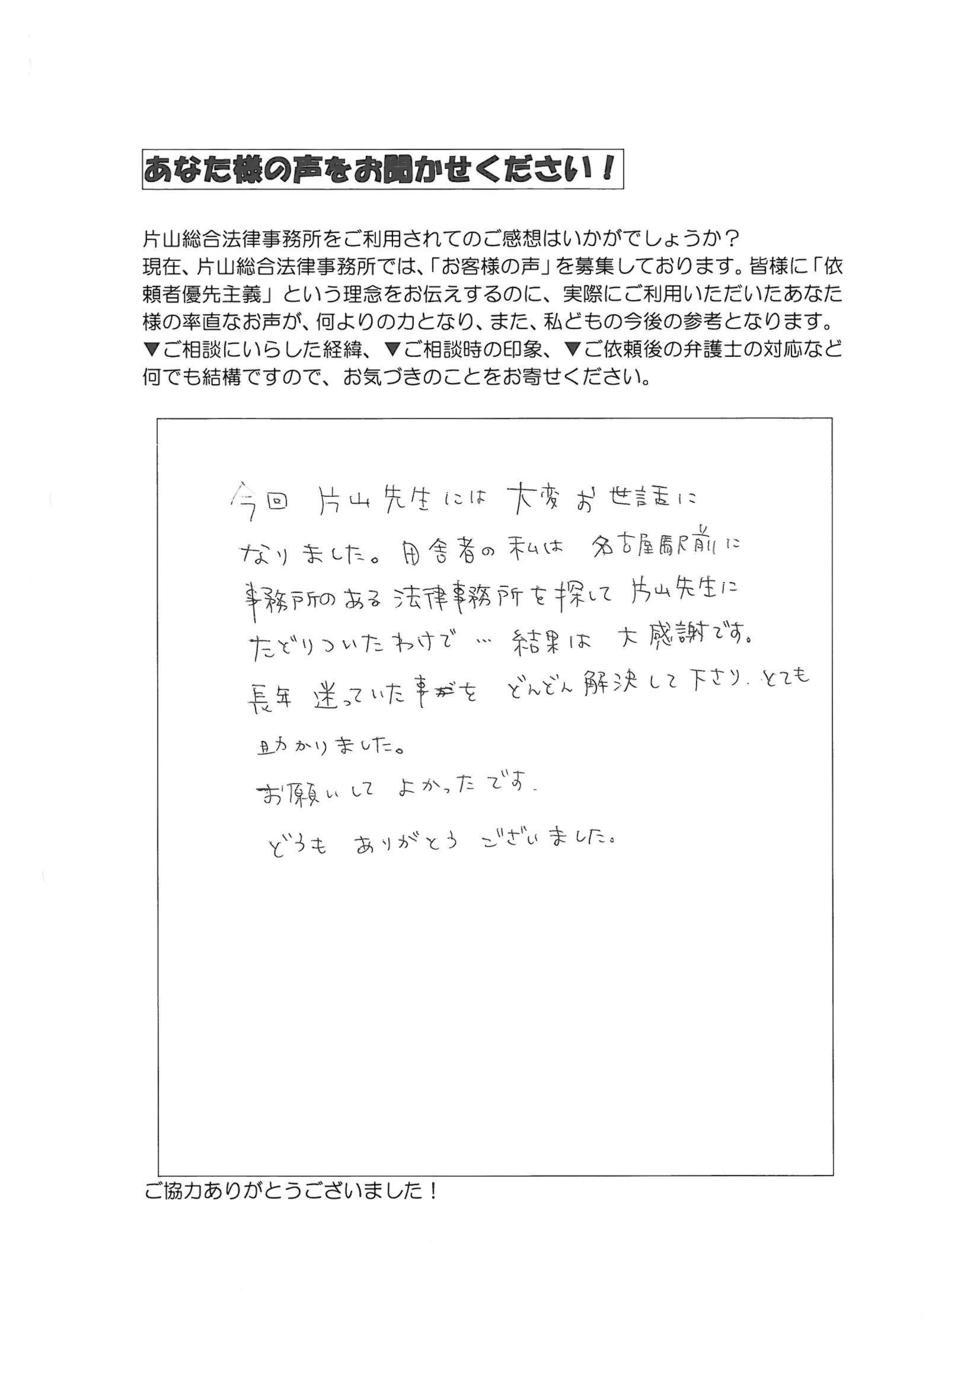 あなた様の声をお聞かせください！
片山総合法律事務所をご利用されてのご感想はいかがでしょうか？
現在、片山総合法律事務所では、「お客様の声」を募集しております。皆様に「依
頼者優先主義」という理念をお伝えするのに、実際にご利用いただいたあなた
様の率直なお声が、何よりの力となり、また、私どもの今後の参考となります。
▼ご相談にいらした経緯、▼ご相談時の印象、▼ご依頼後の弁護士の対応など
何でも結構ですので、お気づきのことをお寄せください。
今回 片山先生には 大変お世話に
なりました。田舎者の私は 名古屋駅前に
事務所のある法律事務所を探して 片山先生に
たどりついたわけで… 結果は 大感謝です。
長年 迷っていた事がを どんどん解決して下さり、とても
助かりました。
お願いして よかったです.
どうも ありがとう ございました。
ご協力ありがとうございました！